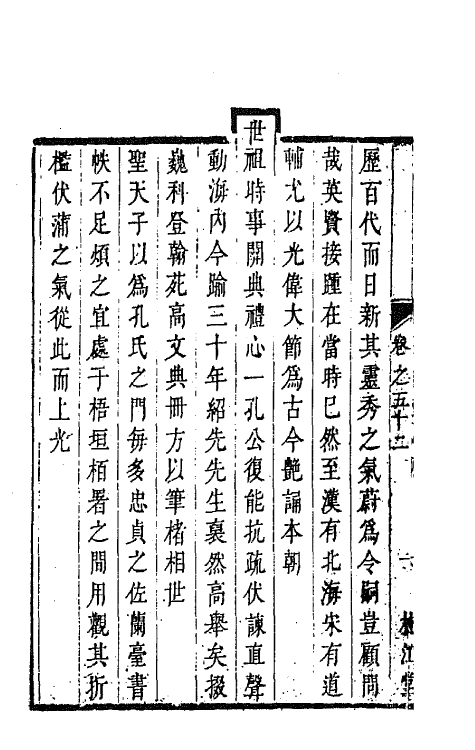 歷百代而日新其靈秀之氣蔚爲令嗣豈顧問
哉英賢接踵在當時已然至漢有北海朱有道
輔尤以光偉大節爲古今艶誦本朝
世祖時事開典禮心一孔公復能抗疏伏諫直聲
動海内今踰三十年紹先先生裒然高舉矣掇
巍科登翰苑高文典冊方以筆楮相世
聖天子以爲孔氏之門每多忠貞之佐蘭臺書
帙不足煩之宜處于梧垣栢署之間用觀其折
檻伏蒲之氣從此而上光
卷之五十二
一
江堂